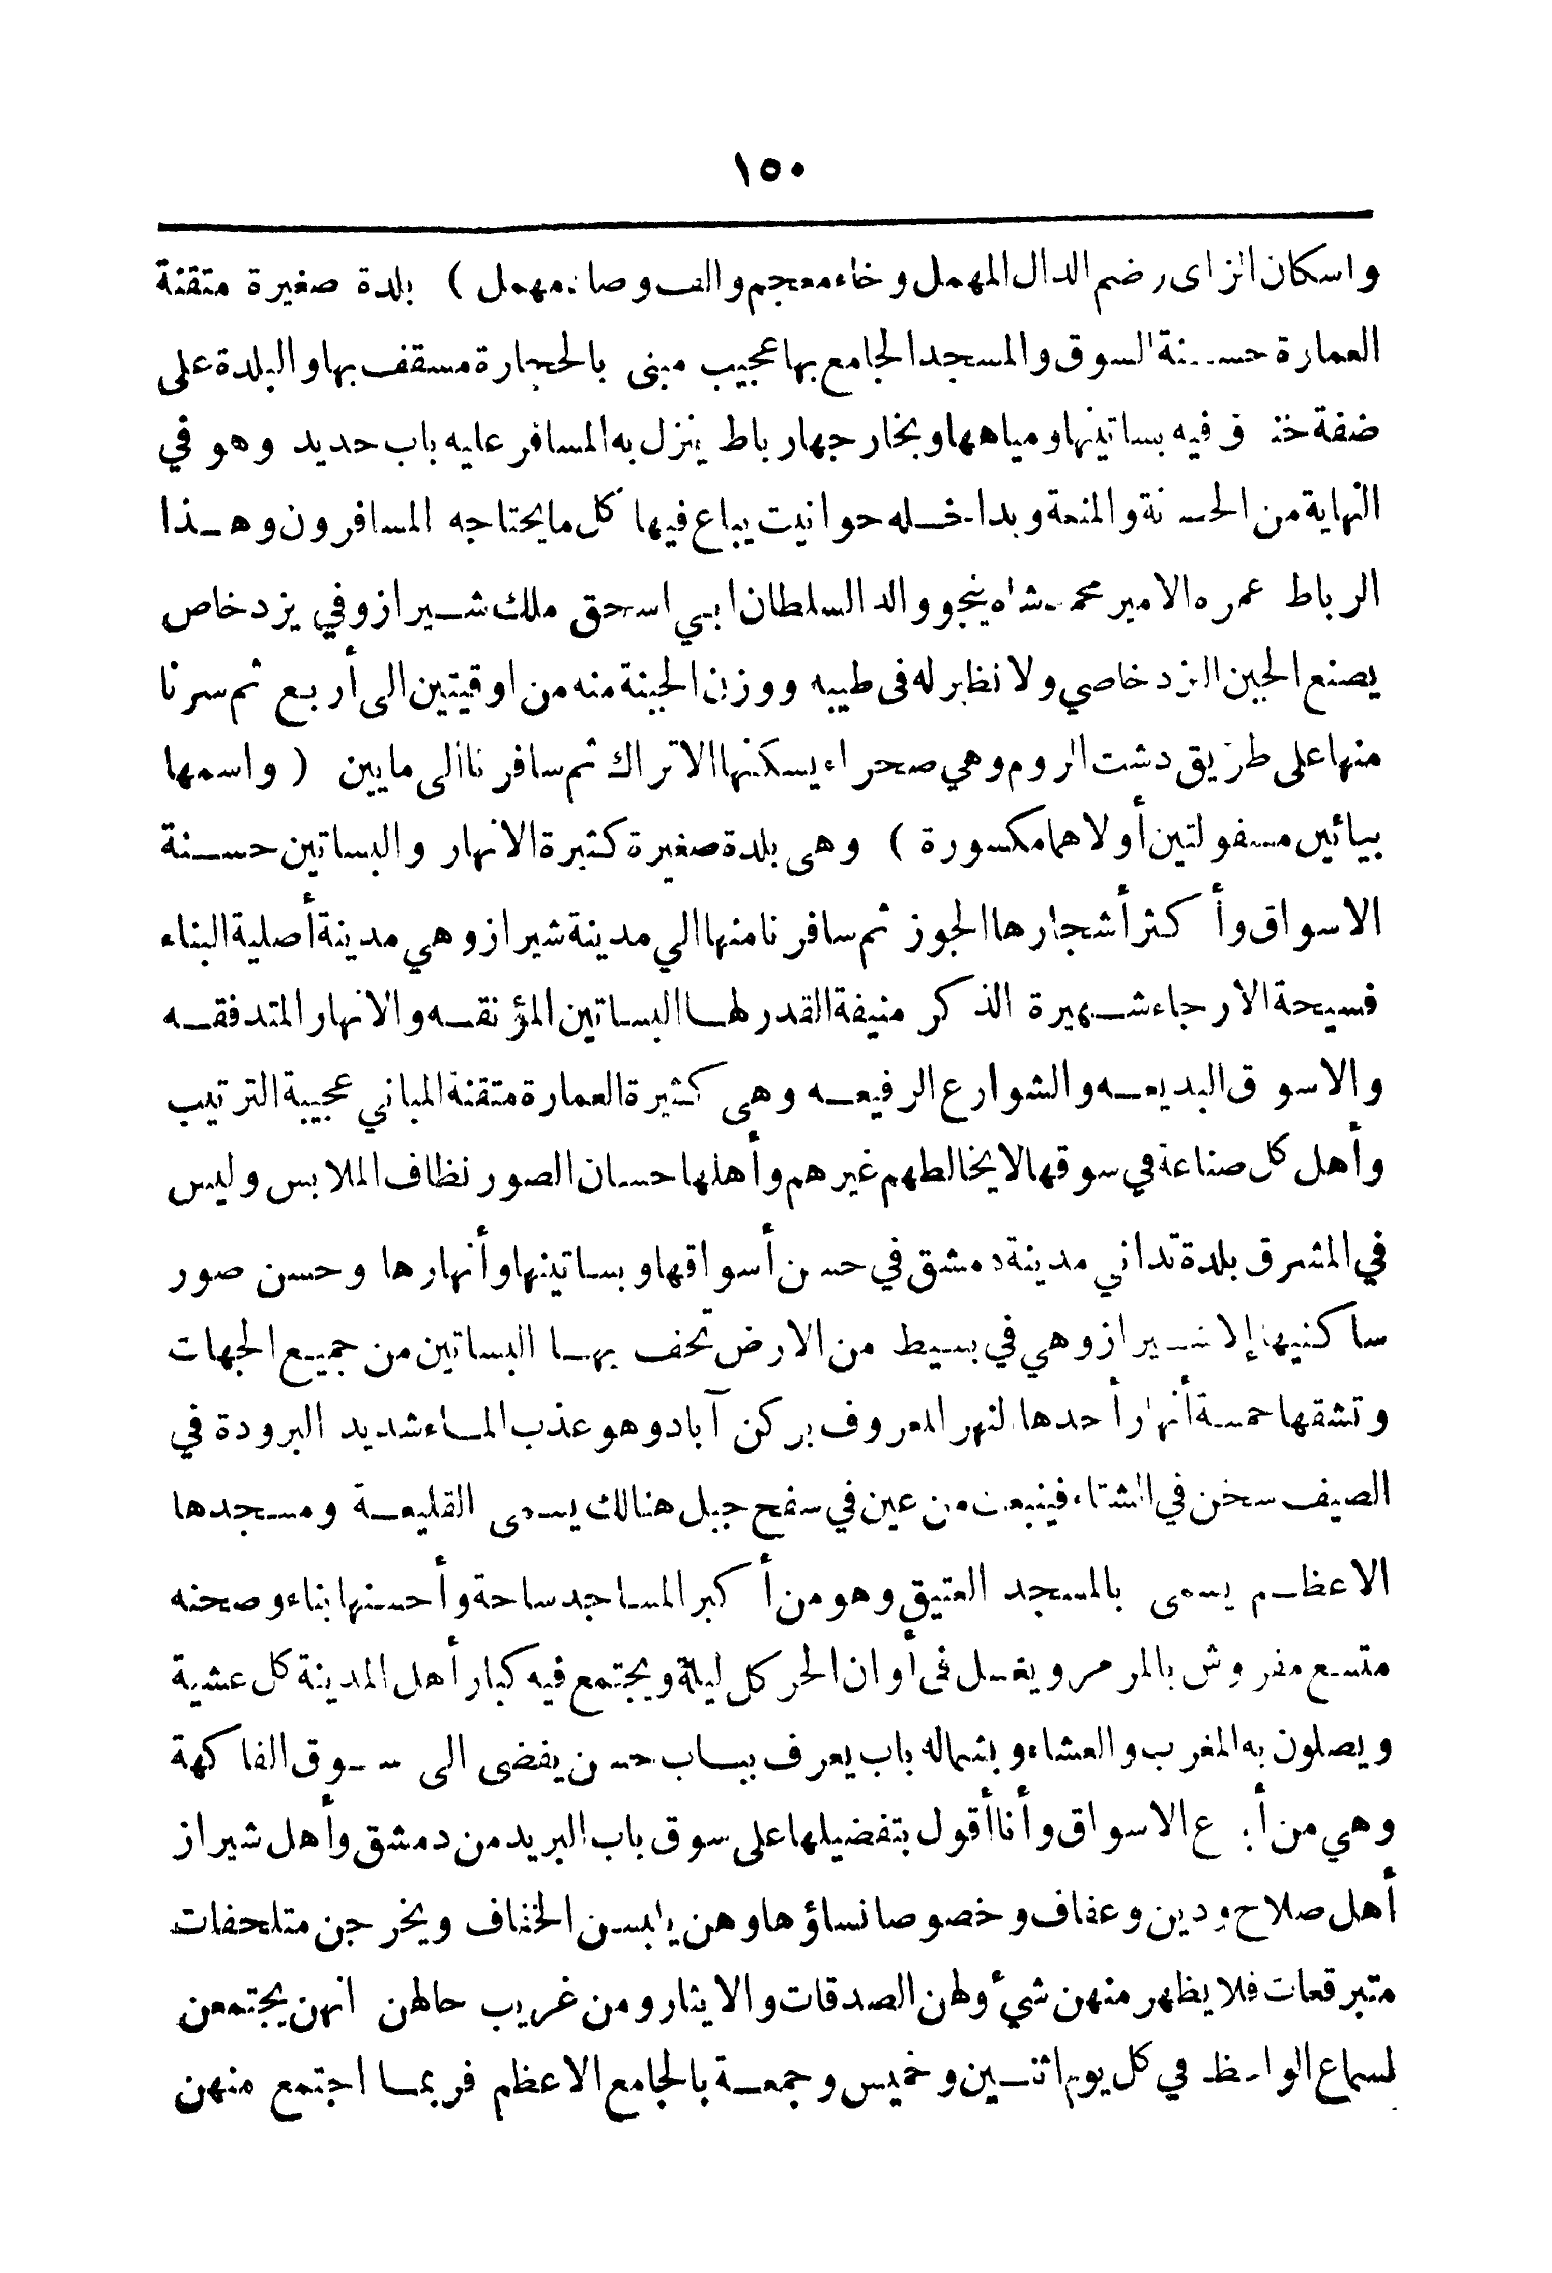 ١٥٠
واسكان الزاى وضم الدال المهمل وخاء معجم والف وصاد مهمل ) بلدة صغيرة متقنة
العمارة حسنة السوق والمسجد الجامع بها عجيب مبنى بالحجارة مسقف بها والبلدة على
ضفة خندق فيه بساتينها ومياهها وبخارجها رباط ينزل به المسافر عليه باب حديد وهو في
النهاية من الحسنة والمنعة وبداخله حوانيت يباع فيها كل ما يحتاجه المسافرون وهذا
الرباط عمره الامير محمد شاه ينجو والد السلطان ابي اسحق ملك شيراز وفي يزدخاص
يصنع الجبن اليزدخاصي ولا نظير له فى طيبه ووزن الجبنة منه من اوقيتين الى أربع ثم سرنا
منها على طريق دشت الروم وهي صحراء يسكنها الاتراك ثم سافرنا الى مايين ( واسمها
بيائين مسفولتين أولاهما مكسورة ) وهى بلدة صغيرة كثيرة الانهار والبساتين حسنة
الاسواق وأكثر أشجارها الجوز ثم سافرنا منها الي مدينة شيراز وهي مدينة أصلية البناء
فسيحة الارجاء شهيرة الذكر منيفة القدر لها البساتين المؤنقه والانهار المتدفقه
والاسوق البديعه والشوارع الرفيعه وهى كثيرة العمارة متقنة المباني عجيبة الترتيب
وأهل كل صناعة في سوقها لا يخالطهم غيرهم وأهلها حسان الصور نظاف الملابس وليس
في المشرق بلدة تداني مدينة دمشق في حسن أسواقها وبساتينها وأنهارها وحسن صور
ساكنيها إلا شيراز وهي في بسيط من الارض تحف بها البساتين من جميع الجهات
وتشقها خمسة أنهار أحدها النهر المعروف بركن آباد وهو عذب الماء شديد البرودة في
الصيف سخن في الشتاء فينبعث من عين في سفح جبل هنالك يسمى القليعة ومسجدها
الاعظم يسمى بالمسجد العتيق وهو من أكبر المساجد ساحة وأحسنها بناء وصحنه
متسع مفروش بالمرمر ويغسل فى أوان الحر كل ليلة ويجتمع فيه كبار أهل المدينة كل عشية
ويصلون به المغرب والعشاء وبشماله باب يعرف بباب حسن يفضى الى سوق الفاكهة
وهي من أبدع الاسواق وأنا أقول بتفضيلها على سوق باب البريد من دمشق وأهل شيراز
أهل صلاح ودين وعفاف وخصوصا نساؤها وهن يلبسن الخفاف ويخرجن متلحفات
متبرقعات فلا يظهر منهن شيء ولهن الصدقات والايثار ومن غريب حالهن انهن يجتمعن
لسماع الواعظ في كل يوم اثنين وخميس وجمعة بالجامع الاعظم فربما اجتمع منهن